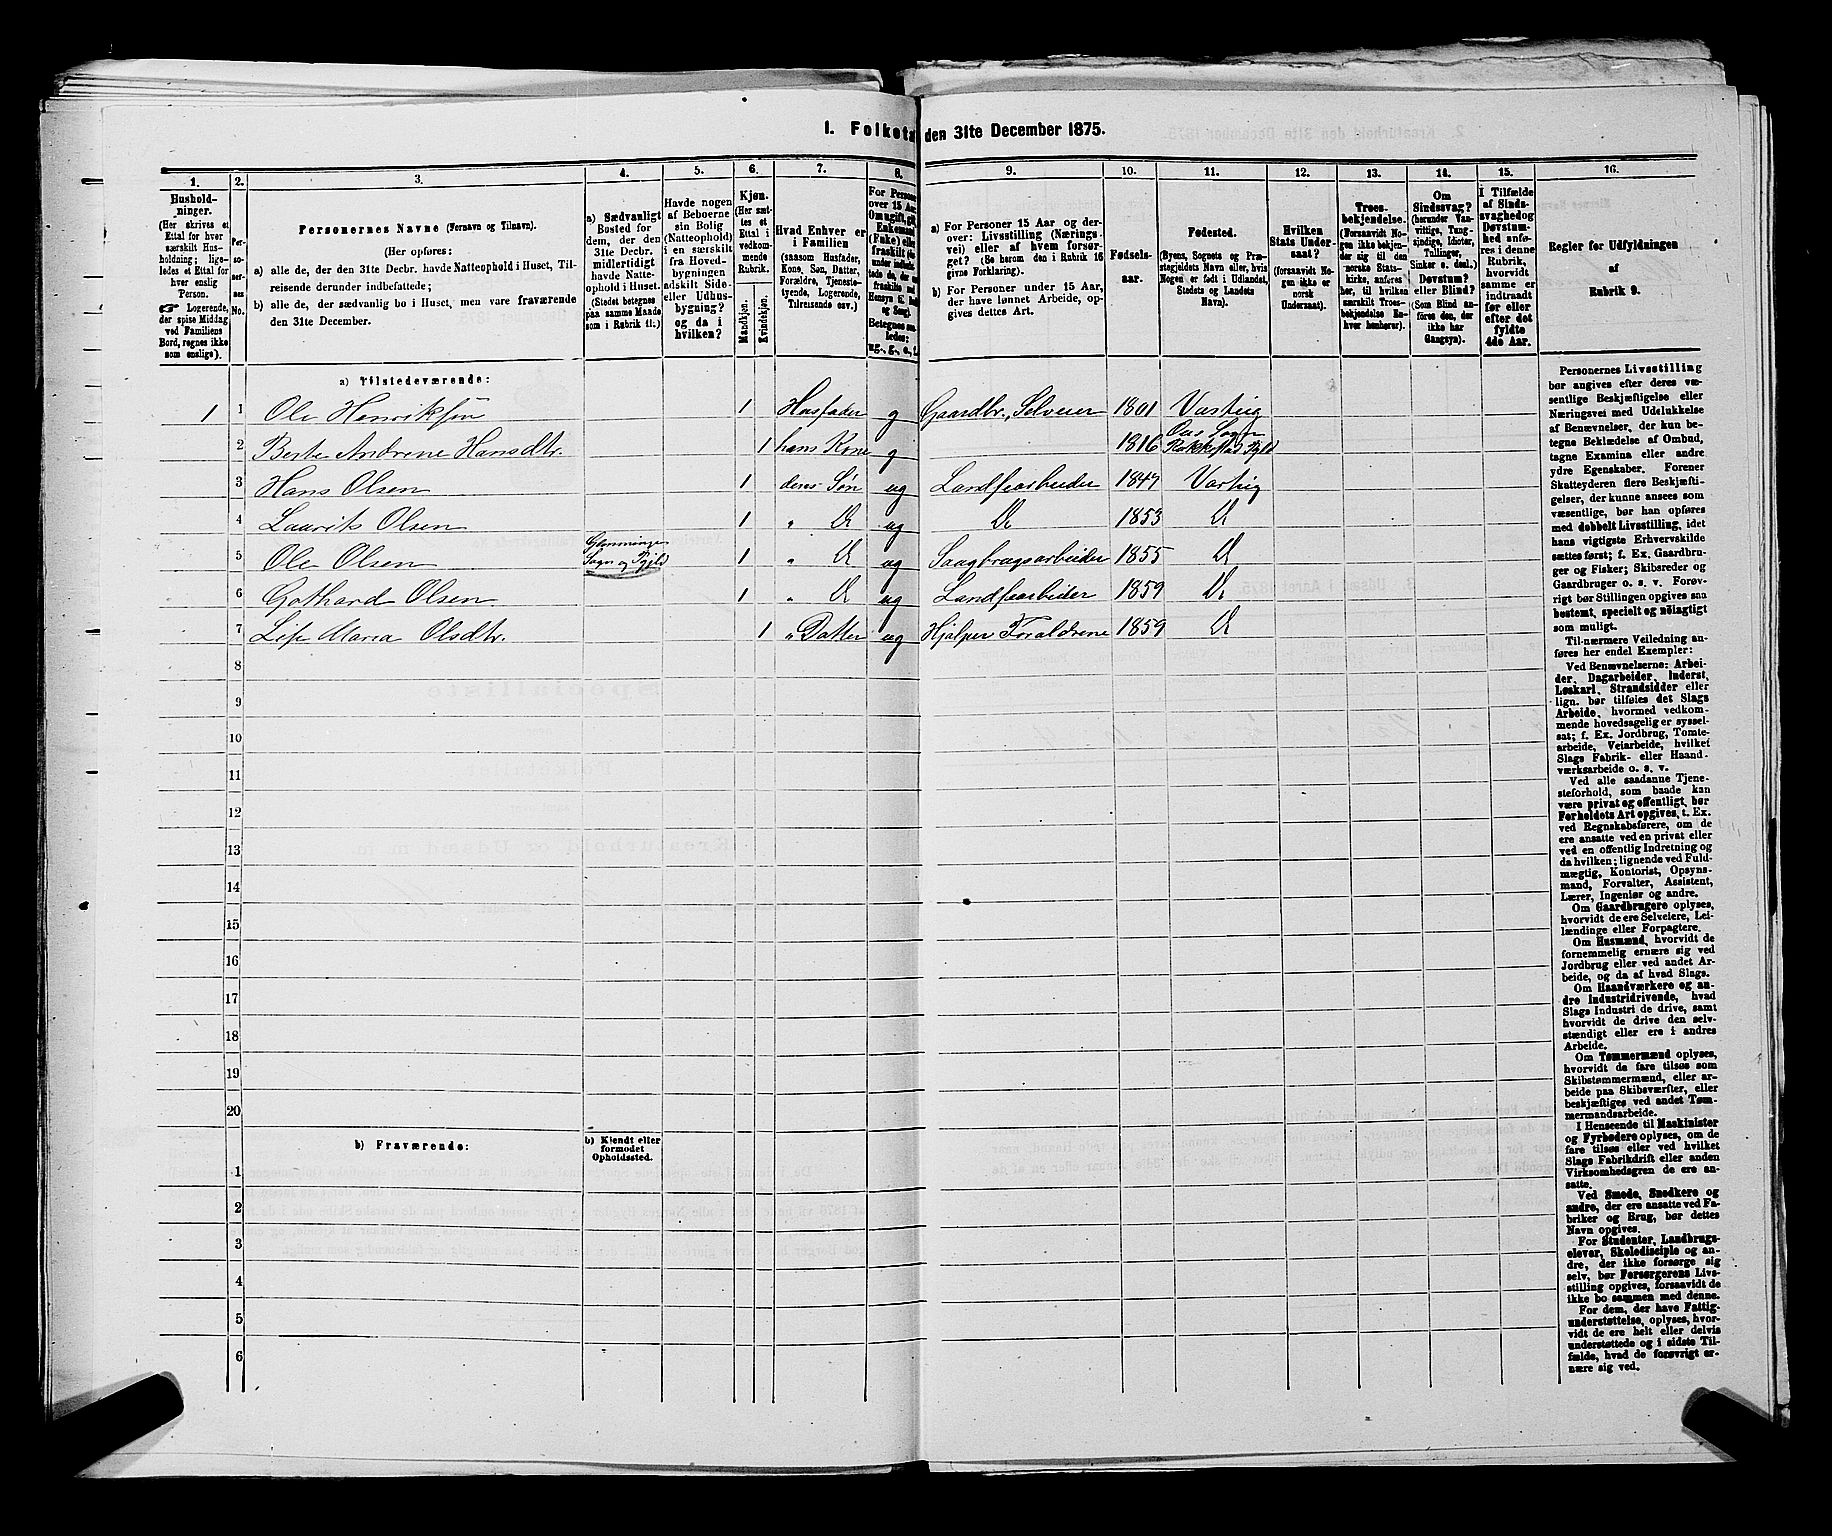 1. Folketæ den 31te December 1875.
1. 2. 3. 4. 5. 6. 7. 8. 9. 10. 11. 12. 13. 14. 15. 16.
Hushold-
ninger.
(Her skrives et
Ettal for hver
særskilt Hus-
holdning; lige-
ledes et Ettal for
hver enslig
Person.
☞ Logerende,
der spise Middag
ved Familiens
Bord, regnes ikke
som enslige).
Per-
so-
ner-
nes
No.
Personernes Navne (Fornavn og Tilnavn).
(Her opføres:
a) alle de, der den 31te Decbr. havde Natteophold i Huset, Til-
reisende derunder indbefattede;
b) alle de, der sædvanlig bo i Huset, men vare fraværende
den 31te December.
a) Sædvanligt
Bosted for
dem, der den
31te Decbr.
midlertidigt
havde Natte-
ophold i Huset.
(Stedet betegnes
paa samme Maade
som i Rubrik 11.)
Havde nogen
af Beboerne
sin Bolig
(Natteophold)
i en særskilt
fra Hoved-
bygningen
adskilt Side-
eller Udhus-
bygning?
og da i
hvilken?
Kjøn.
(Her sæt-
tes et
Ettal i
vedkom-
mende
Rubrik.
Mandkjøn.
Kvindekjøn.
Hvad Enhver er
i Familien
(saasom Husfader,
Kone, Søn, Datter,
Forældre, Tjeneste-
tyende, Logerende,
Tilreisende osv.)
a) For Personer 15 Aar og der-
over: Livsstilling (Nærings-
vei) eller af hvem forsør-
get? (Se herom den i Rubrik 16
givne Forklaring.)
b) For Personer under 15 Aar,
der have lønnet Arbeide, op-
gives dettes Art.
Fødsels-
aar.
Fødested.
(Byens, Sognets og Præ-
stegjeldets Navn eller, hvis
Nogen er født i Udlandet,
Stedets og Landets
Navn).
Hvilken
Stats Under-
saat?
(forsaavidt No-
gen ikke er
norsk
Undersaat).
Troes-
bekjendelse.
(Forsaavidt No-
gen ikke bekjen-
der sig til den
norske Stats-
kirke, anføres
her, til hvilken
særskilt Troes-
bekjendelse En-
hver henhører).
Om
Sindssvag?
(herunder Van-
vittige, Tung-
sindige, Idioter,
Tullinger,
Sinker o. desl.)
Døvstum?
eller Blind?
(Som Blind an-
føres den, der
ikke har
Gangsyn).
I Tilfælde
af Sinds-
svaghed og
Døvstum-
hed anfø-
res i denne
Rubrik,
hvorvidt
samme er
indtraadt
før eller
efter det
fyldte
4de Aar.
Regler for Udfyldningen
af
Rubrik 9.
a) Tilstedeværende:
1 1 Ole Henriksøn 1 Husfader g Gaardbr., Selveier 1801 Varteig
2 Berte Andrene Hansdtr. 1 hans Kone g 1816 Sogn Rakkestad Pgjld
3 Hans Olsen 1 deres Søn ug Landfearbeider 1847 Varteig
4 Laurits Olsen 1 " D ug D 1853 D
5 Ole Olsen Glemminge Sogn og Pgjld 1 " D ug Saugbrugsarbeider 1855 D
6 Gothard Olsen 1 " D ug Landfearbeider 1859 D
7 Lise Maria Olsdtr. 1 " Datter ug Hjælper Forældrene 1859 D
8
9
10
11
12
13
14
15
16
17
18
19
20
b) Fraværende:
b) Kjendt eller
formodet
Opholdssted.
1
2
3
4
5
6
Personernes Livsstilling
bør angives efter deres væ-
sentlige Beskjæftigelse eller
Næringsvei med Udelukkelse
af Benævnelser, der kun be-
tegne Beklædelse af Ombud,
tagne Examina eller andre
ydre Egenskaber. Forener
Skatteyderen flere Beskjæfti-
gelser, der kunne ansees som
væsentlige, bør han opføres
med dobbelt Livsstilling, idet
hans vigtigste Erhvervskilde
sættes først; f. Ex. Gaardbru-
ger og Fisker; Skibsreder og
Gaardbruger o. s. v. Forøv-
rigt bør Stillingen opgives saa
bestemt, specielt og nøiagtigt
som muligt.
Til nærmere Veiledning an-
føres her endel Exempler:
Ved Benævnelserne: Arbei-
der, Dagarbeider, Inderst,
Løskarl, Strandsidder eller
lign. bør tilføies det Slags
Arbeide, hvormed vedkom-
mende hovedsagelig er syssel-
sat; f. Ex. Jordbrug, Tomte-
arbeide, Veiarbeide, hvilket
Slags Fabrik- eller Haand-
værksarbeide o. s. v.
Ved alle saadanne Tjene-
steforhold, som baade kan
være privat og offentligt, bør
Forholdets Art opgives, t. Ex.
ved Regnskabsførere, om de
ere ansatte ved en privat eller
ved en offentlig Indretning og
da hvilken; lignende ved Fuld-
mægtig, Kontorist, Opsyns-
mand, Forvalter, Assistent,
Lærer, Ingeniør og andre.
Om Gaardbrugere oplyses,
hvorvidt de ere Selveiere, Lei-
lændinge eller Forpagtere.
Om Husmænd, hvorvidt de
fornemmelig ernære sig ved
Jordbrug eller ved andet Ar-
beide, og da af hvad Slags.
Om Haandværkere og an-
dre Industridrivende, hvad
Slags Industri de drive, samt
hvorvidt de drive den selv-
stændigt eller ere i andres
Arbeide.
Om Tømmermænd oplyses,
hvorvidt de fare tilsøs som
Skibstømmermænd, eller ar-
beide paa Skibsværfter, eller
beskjæftiges ved andet Tøm-
mermandsarbeide.
I Henseende til Maskinister
og Fyrbødere oplyses, om de
fare tilsøs eller ved hvilket
Slags Fabrikdrift eller anden
Virksomhedsgren de ere an-
satte.
Ved Smede, Snedkere og
andre, der ere ansatte ved Fa-
briker og Brug, bør dettes
Navn opgives.
For Studenter, Landbrugs-
elever, Skoledisciple og an-
dre, der ikke forsørge sig
selv, bør Forsørgerens Livs-
stilling opgives, forsaavidt de
ikke bo sammen med denne.
For dem, der have Fattig-
understøttelse, oplyses, hvor-
vidt de ere helt eller delvis
understøttede og i sidste Til-
fælde, hvad de forøvrigt er-
nære sig ved.